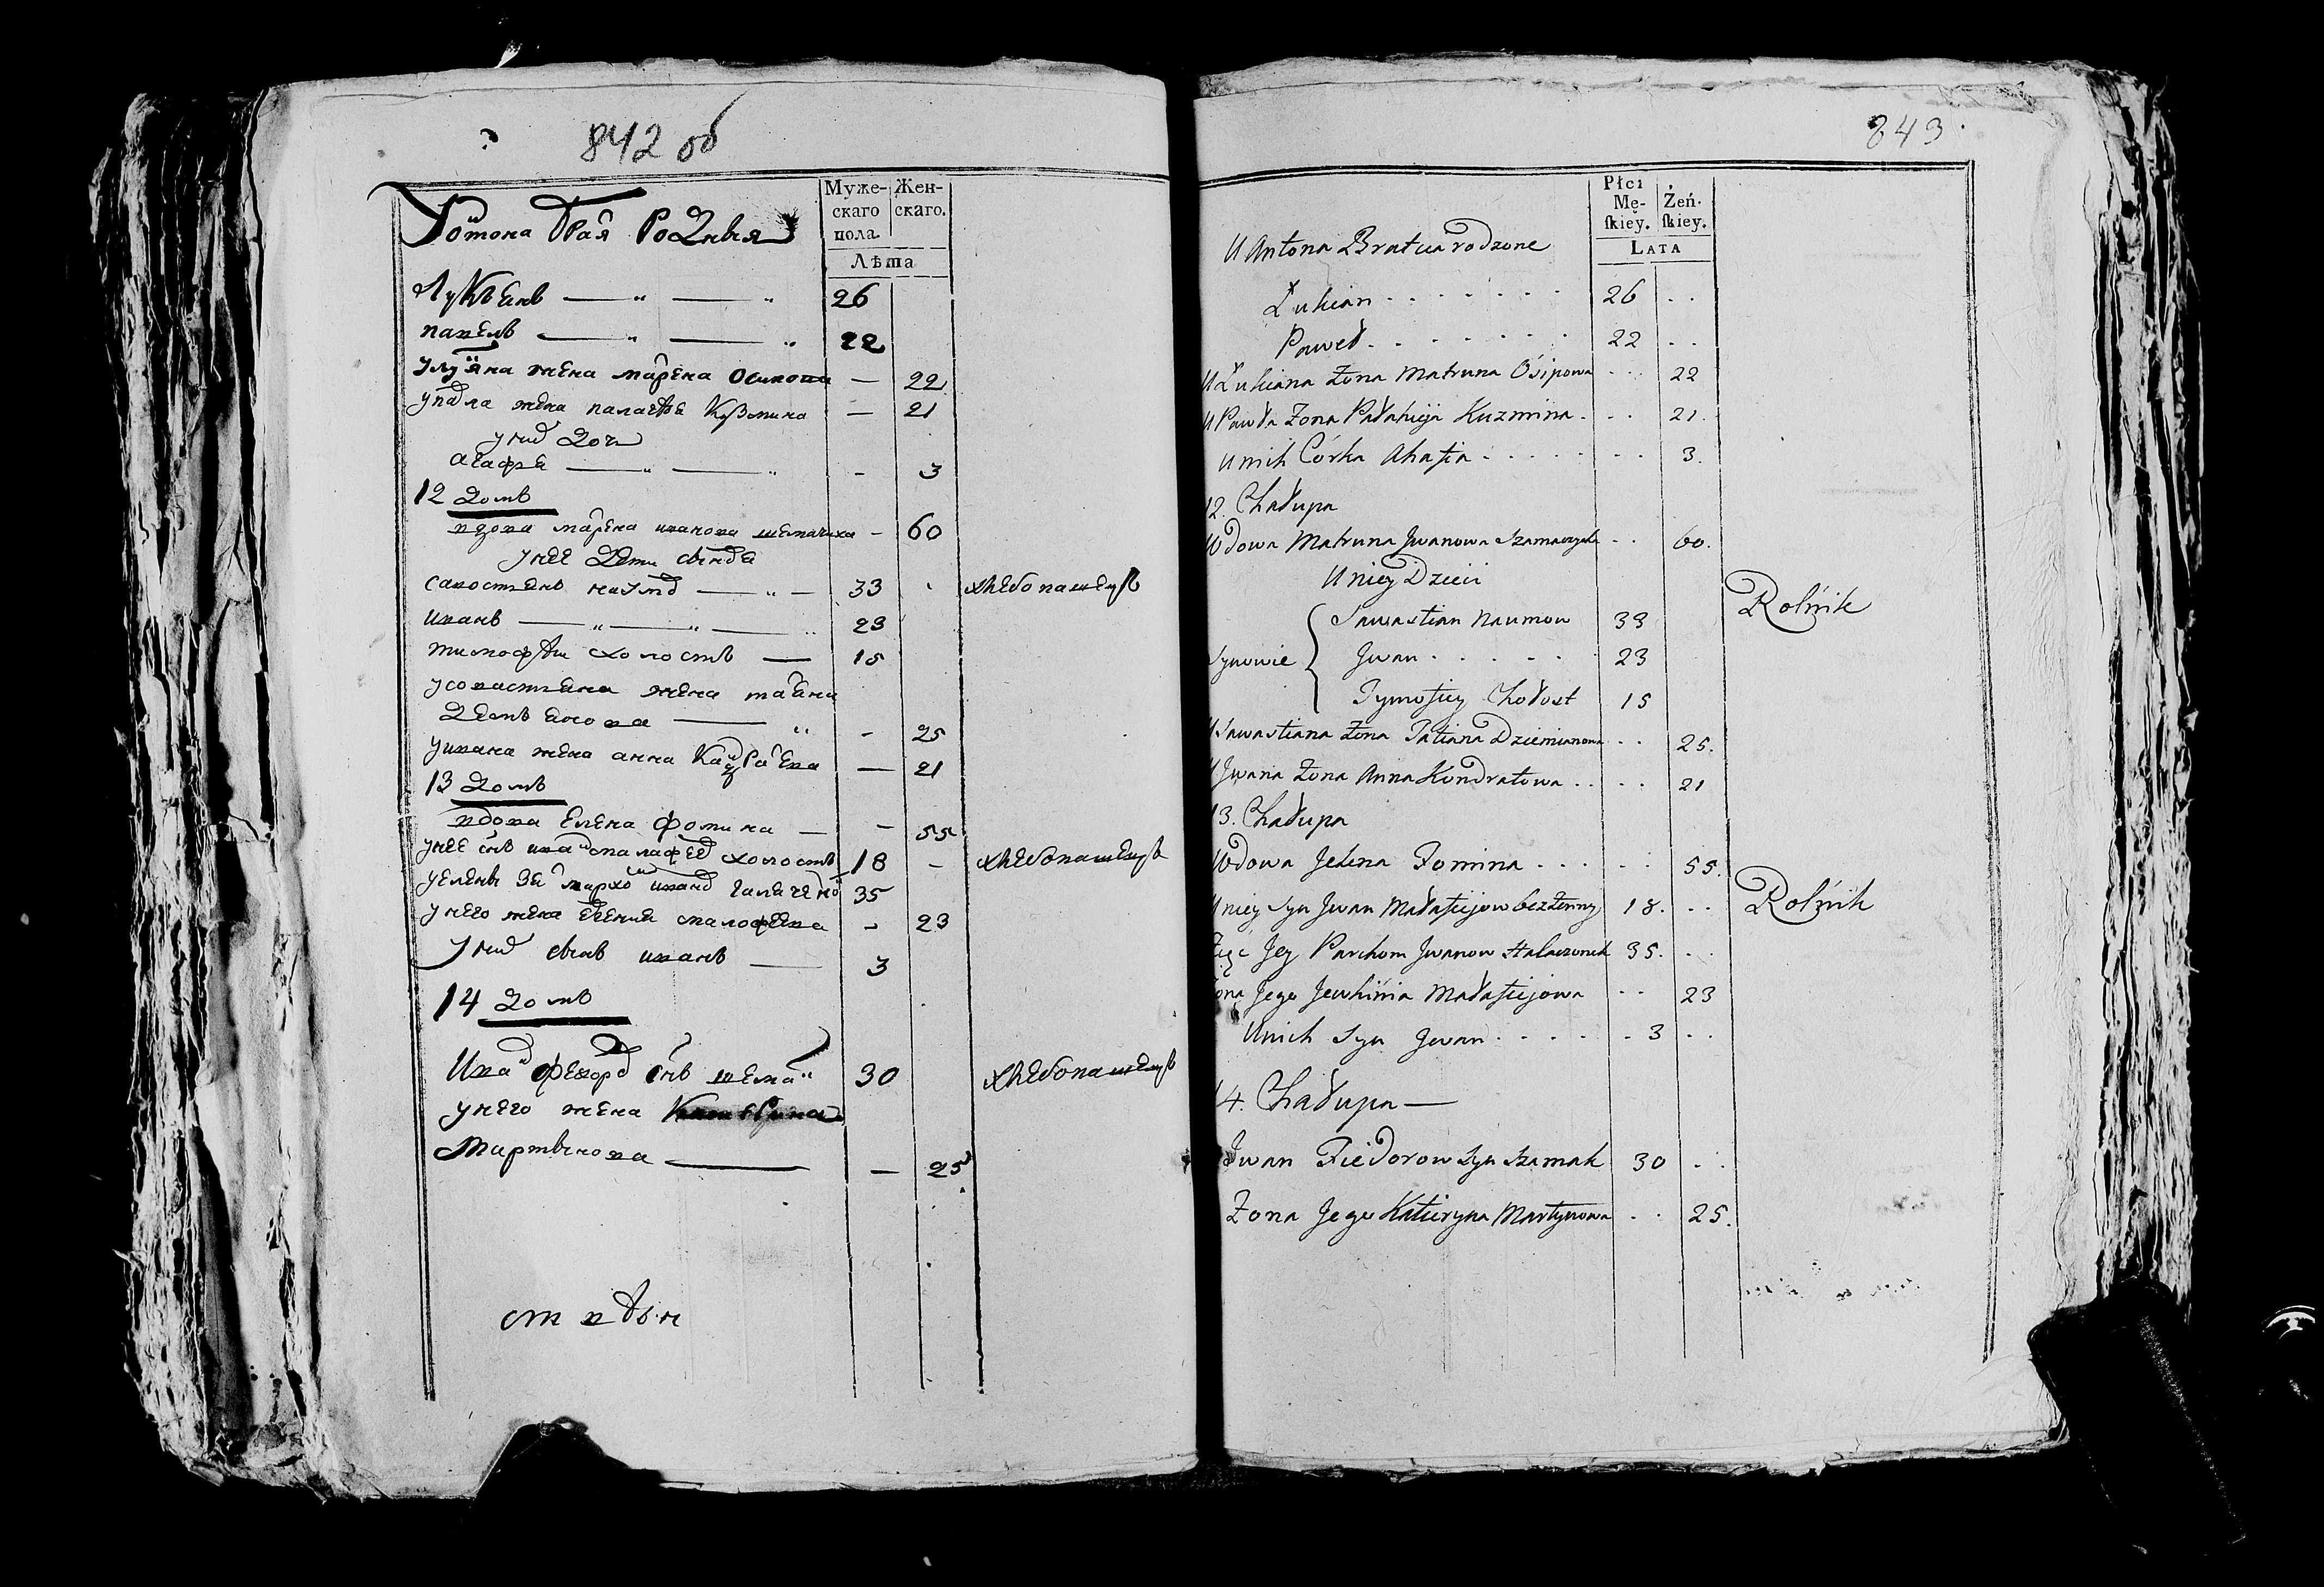 842 об
Муже- Жен-
скаго скаго.
пола
Лѣта
Антона брая родныя
Лукьянъ — " — " 26
павелъ — " — " 22
улуяна жена марена осипова — 22
упавла жена палагѣе Кузмина — 21
у них дочь
агафе — " — " - 3
12 домъ
вдова марена иванова шемачиха - 60
у нее дети сынове
савостеянъ наумо — " — 33 хлебопашецъ
иванъ — " — " — " 23
тимофѣи холостъ — 15
усовастеяна жена таяна
демьенова — " - 25
уивана жена анна Кадраева — 21
13 домъ
вдова Елена фомина — - 55
у нее снъ ива малафее холостъ 18 - хлебопашецъ
у елены зе пархо ивано галаченo 35
у него жена евгение малофеева - 23
у них сынъ иванъ — 3
14 домъ
Ива федоро снъ шема 30 хлебопашецъ
у него жена Катерина
мартынова — — 25
843
Płci
Mę- Żeń-
skiey. skiey.
LATA
U Antona Bratua rodzone
Łukian 26
Paweł 22
U Łukiana Żona Matruna Ósipowa 22
U Pawła Żona Pałahieja Kuzmina 21.
U nich Córka Ahafia 3.
12. Chałupa
Wdowa Matruna Jwanowa Szamaczycha 60.
U niey Dzieci
Sawastian Naumow 33 Rolnik
Synowie Jwan 23
Tymofiey Chołost 15
U Sawastiana Żona Tatiana Dziemianowa 25.
U Jwana Żona Anna Kondratowa 21
13. Chałupa
Wdowa Jelena Fomina 55.
U niey Syn Jwan Małafiejow bezżenny 18. Rolnik
Zięć Jey Parchom Jwanow Hałaczonek 35.
Żona Jego Jewhinia Małafiejowa 23
U nich Syn Jwan 3
14. Chałupa —
Jwan Fiedorow Syn Szamak 30
Żona Jego Katieryna Martynowa 25.